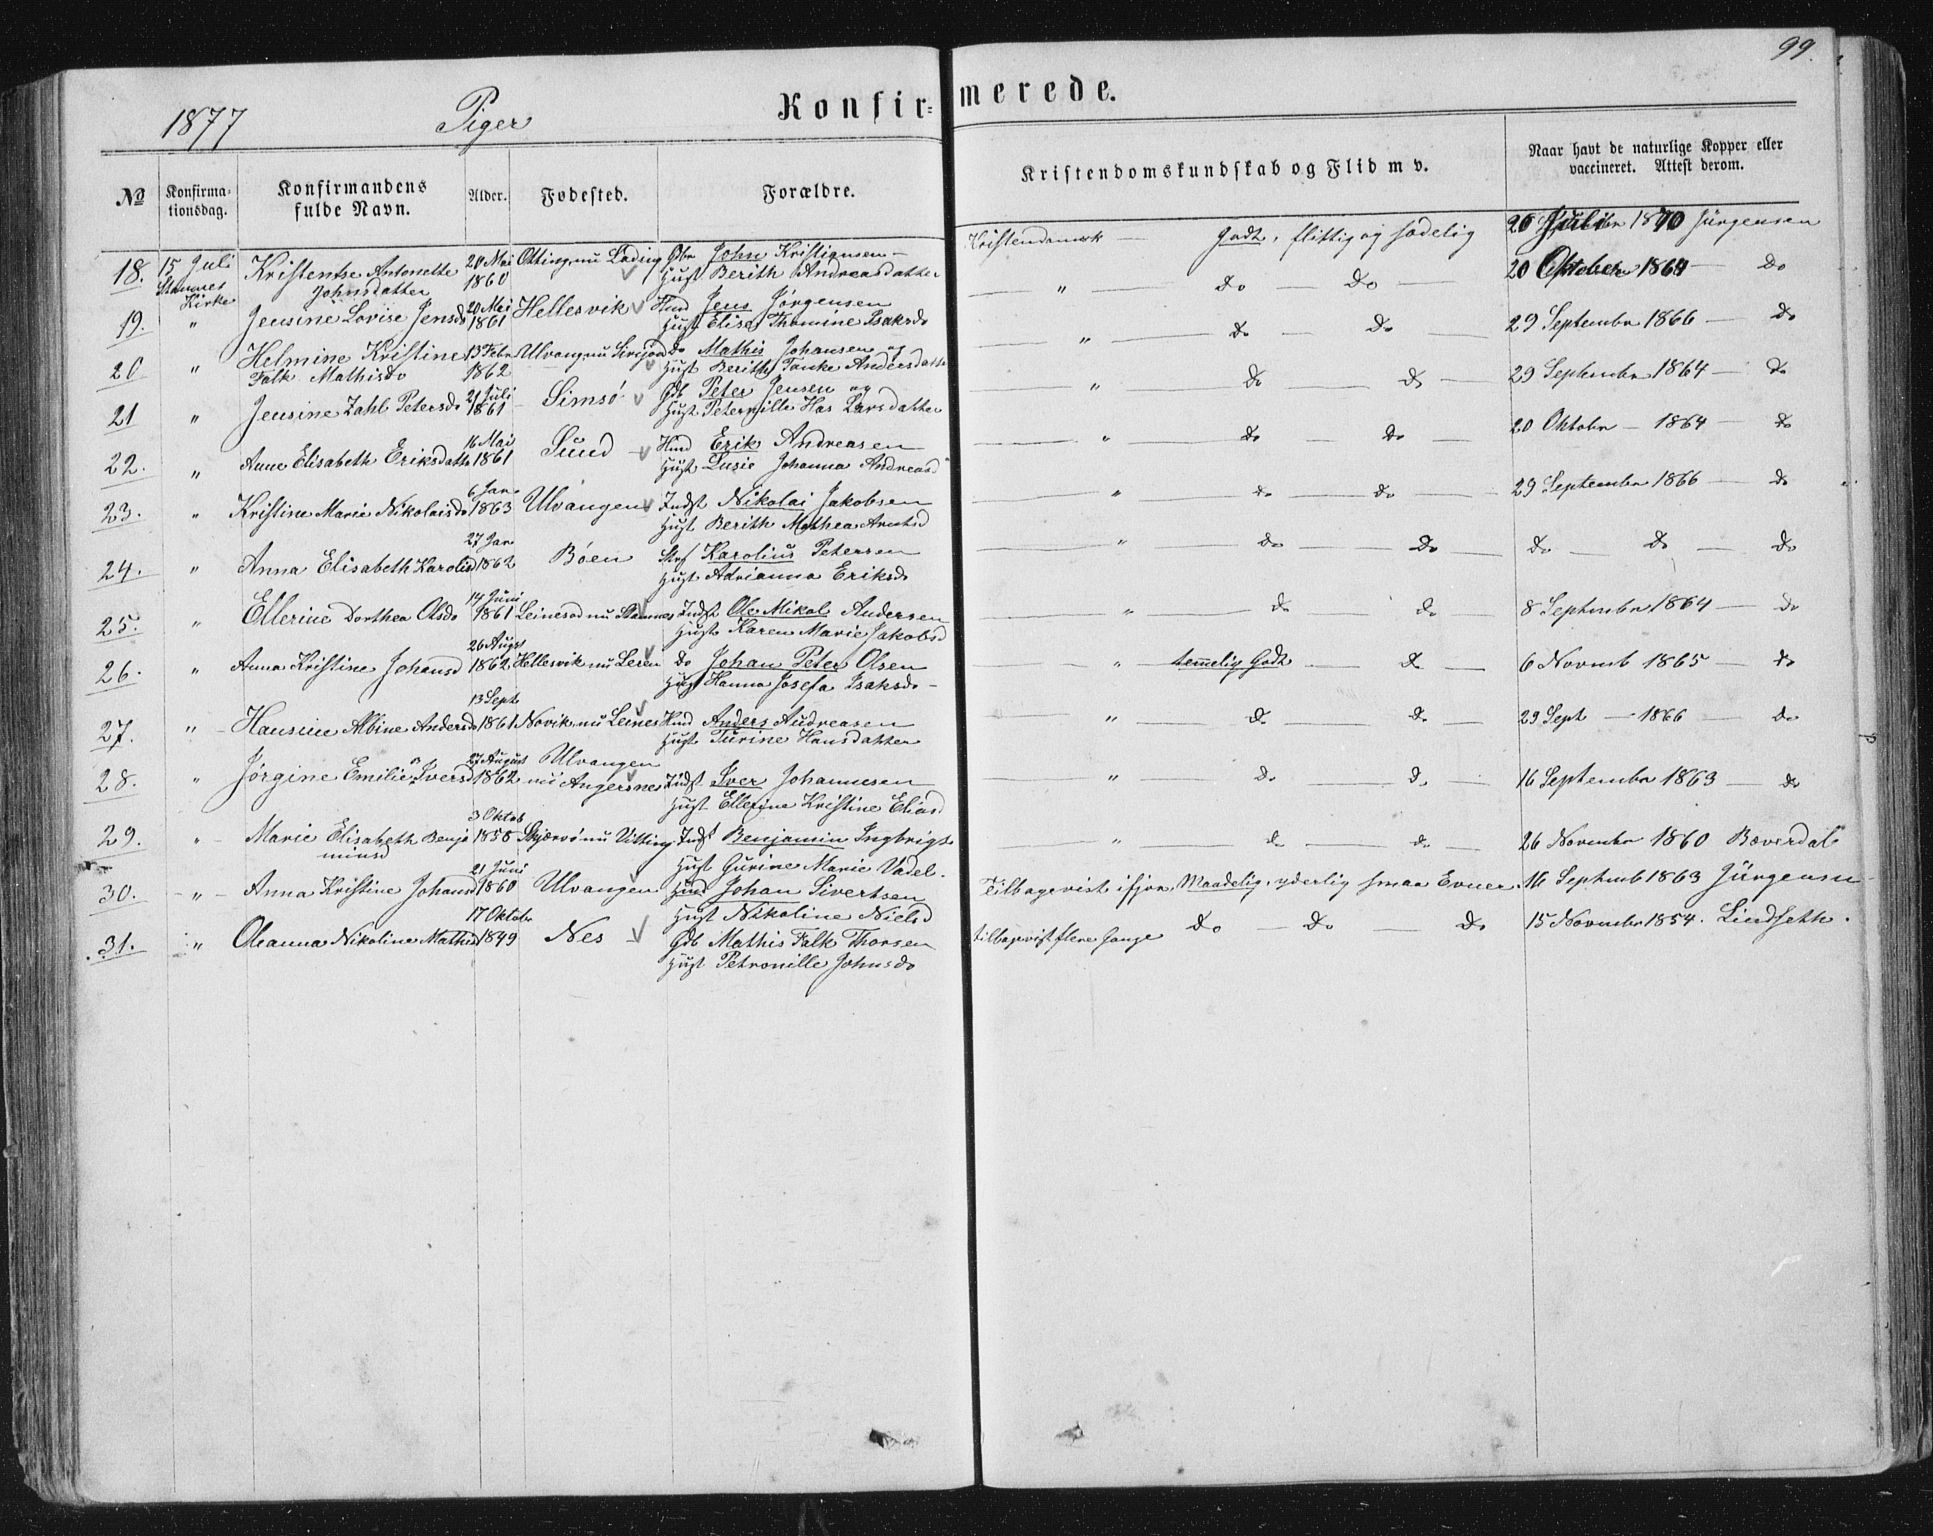 99.
1877 Piger Konfir- merede.
No Konfirma-tionsdag. Konfirmandens fulde Navn. Alder. Fødested. Forældre. Kristendomskundskab og Flid m v. Naar havt de naturlige Kopper eller vaccineret. Attest derom.
18. 15 Juli Stamnes Kirke Kristentse Antonette Johnsdatter Mai 1860 Otting nu Lading Gbr John Kristiansen
Hust Berith Andreasdatter Kristendomsk — Godt, flittig og sædelig 20 Juli 1870 Jürgensen
19. " Jensine Lovise Jensd 20 Mai 1861 Hellesvik Hmd Jens Jørgensen
Hust Elise Thomine Isaksd " Do — Do 20 Oktober 1864 — Do
20 " Helmine Kristine Falk Mathisd 13 Febr 1862 Ulvang nu Do Mathis Johansen og
Hust Berith Tanke Andersdatter " Do — Do 29 September 1866 — Do
21 " Jensine Zahl Petersd 21 Juli 1861 Simsø Gb Peter Jensen og
Hust Peternille Has Larsdatter " Do — Do 29 September 1864 — Do
22. " Anne Elisabeth Eriksdatter 16 Mai 1861 Sund Hmd Erik Andreasen
Hust Lusie Johanna Andreasd " Do — Do 20 Oktobr — 1864 — Do
23. " Kristine Marie Nikolaisd 6 Jan 1863 Ulvangen Indst Nikolai Jakobsen
Hust Berith Mathea Arntsd " Do — Do 29 September 1866 — Do
24. " Anna Elisabeth Karolisd 27 Jan 1862 Bøen Strf Karolius Petersen
Hust Adrianna Eriksd " Do — Do Do — Do — Do
25. " Ellerine Dorthea Olsd 14 Juni 1861 Leinesod nu Stamnes Indst Ole Mikal Andersen
Hust Karen Marie Jakobsd " Do Do 8 Septembr 1864 — Do
26. " Anna Kristine Johansd 26 Augs 1862 Hellesvik nu Leren Do Johan Peter Olsen
Hust Hanna Josefa Isaksd " temmelig Godt — Do 6 Novemb 1865 — Do
27. " Hansine Albine Andersd 13 Sept 1861 Novik nu Leines Hmd Anders Andreasen
Hust Turine Hansdatter " Do — Do 29 Sept — 1866 — Do
28. " Jørgine Emilie Iversd 27 August 1862 Ulvangen nu Angersnes Indst Iver Johannesen
Hust Ellerine Kristine Eliasd " Do Do 16 September 1863 — Do
29. " Marie Elisabeth Benjaminsd 3 Oktob 1858 Skjærvø nu Vitting Indst Benjamin Ingbrigts
Hust Gurine Marie Vadel. " Do — Do 26 November 1860 Bæverdal
30. " Anna Kristine Johansd 21 Juni 1860 Ulvangen Hmd Johan Sivertsen
Hust Nikoline Nielsd Tilbagevist ifjor. Maadelig, yderlig smaa Evner. 16 Septemb 1863 Jürgensen
31. " Oleanna Nikoline Mathisd 17 Oktobr 1849 Nes Gdb Mathis Falk Thorsen
Hust Petronille Johnsd tilbagevist flere Gange Do — Do — Do 15 November 1854. Lindseth.